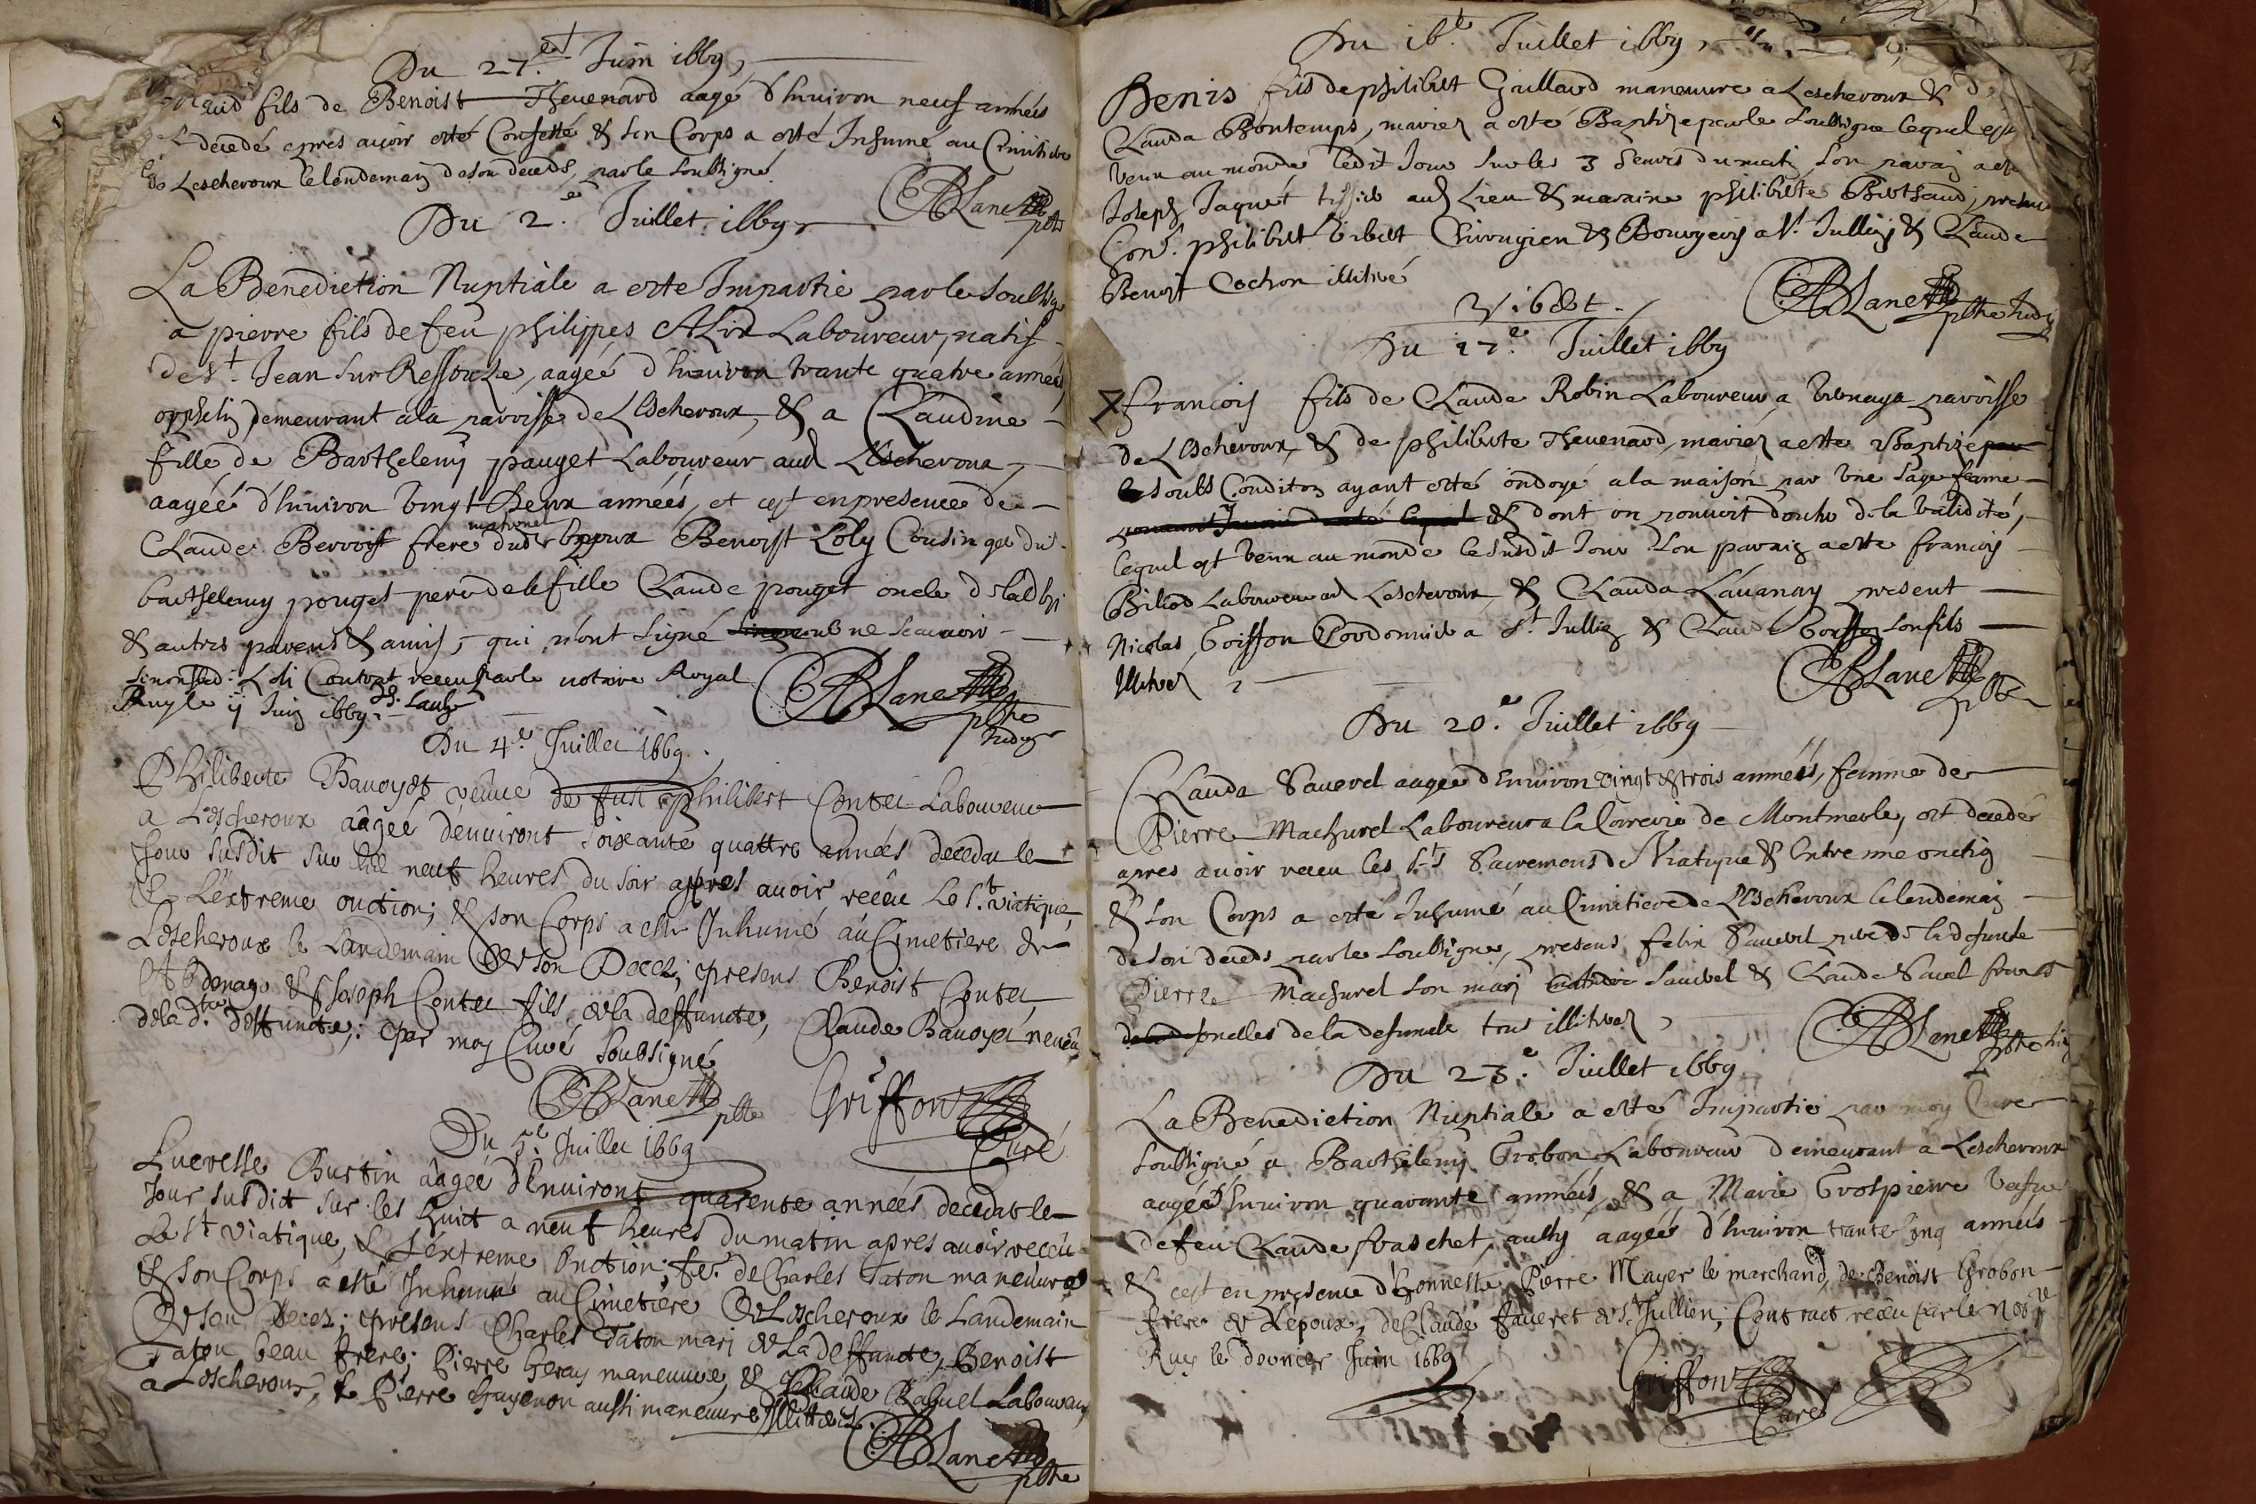 Du 27.e Juin 1669,
fils de Benoist Theuenard aagé d'Enuiron neuf années
decedé apres auoir esté Confessé & son Corps a esté Inhumé au Cimitiere
de Lescheroux le lendemain de son deceds, par le soubsigné
CABLanette pbtre
Du 2.e Juillet 1669
La Benediction Nuptiale a esté Impartie par le soubsigé
a pierre fils de feu philippes ALix Laboureur, natif
de St. Jean sur Ressouze, aagéé d'Enuiron trante quatre années
orphelin demeurant a la paroisse de LEscheroux, & a Claudine
fille de Barthelemy pauget Laboureur aud LEscheroux,
aagéé d'Enuiron vingt Deux années, et cest en presence de
Claude Bervoist frere maternel dud Espoux Benoist Loly Cousin ge du
barthelemy pouget pere de la fille Claude pouget oncle
& autres parens & amis, qui n'ont signé ne scauoir
Contrat receu par le notaire Royal
CABLanette pbtre
Juin 1669
Du 4.e Juillet 1669.
Philiberte Bauoyet vêuue de Philibert Contet Laboureur
a Lescheroux aàgeé denuiront soixante quattre années decedat le
Jour susdit sur neuf heures du soir apres auoir receu le St. viatique,
& L'extreme onction; & son Corps a este Inhumé au Cimetiere de
Lescheroux le Landemain de son Decez; presens Benoist Contet
& Joseph Contet fils de la deffuncte, Claude Bauoyet neueu
de la d.te deffuncte; Par moy Curé Soubsigné
CABLanette pbtre Griffon Curé
Du 5.e Juillet 1669
Lucresse Burtin aàgeé d'Enuiront quarente années decedat le
Jour susdit sur les huict a neuf heures du matin apres auoir recéu
Le St Viatique, & L'éxtreme Onction; fe. de Charles Taton maneuure
& son Corps a esté Inhumé au Cimetiere de Lescheroux le Landemain
de son Decez; presens Charles Taton mari de La deffuncte, Benoist
Taton beau frere; Pierre maneuure, & Claude Laboureur
a Lescheroux, & Pierre Guyenon aussi maneuure Illitterez
CABLanette pbtre
Du 16.e Juillet 1669,
Denis fils de philibert Gaillard maneuure a Lescheroux & de
Clauda Bontemps, mariez a esté Baptizé par le soubsigné lequel est
venu au monde ledit Jour sur les 3 heures du matin son parain a esté
Joseph Jaquet aud Lieu & maraine philiberte
philibert Vibert Chirugien & Bourgeois a St. Jullien & Claude
Benoist Cochon illitere
Vibert.
CABLanette pbtre
Du 17.e Juillet 1669
François fils de Claude Robin Laboureur a paroisse
de LEscheroux, & de philiberte Theuenard, mariez a este Baptizé
soubs Condition ayant esté ondoyé a la maison par vne sage femme
& dont on pouuoit douter de la validité,
lequel est venu au monde le susdit Jour son parain a esté françois
Laboureur aud Lescheroux, & Clauda present
Nicolas Goisson Cordonnier a St. Jullien & Claude son fils
Illiterez
CABLanette pbtre
Du 20.e Juillet 1669
Clauda Sauerel aagée d'Enuiron vingt & trois années, femme de
Pierre Machurel Laboureur a la Correrie de Montmerle, est decedée
apres auoir receu les Sts Sacremens de Viatique & Extreme onction
& son Corps a esté Inhumé au Cimitiere de LEscheroux le lendemain
de son deceds par le soubsigné, presens felix Sauerel pere de la defunte
Pierre Machurel son mari & Claude freres
de la defuncte tous illiterez
CABLanette pbtre
Du 23.e Juillet 1669
La Benediction Nuptiale a esté Impartie par moy Curé
soubsigné a Barthelemy Grobon Laboureur demeurant a Lescheroux
aagé d'Enuiron quarante années, & a Marie Grospierre vefue
de feu Claude fraschet, aussy aagéé d'Enuiron trante cinq années
& cest en presence d'honneste Pierre Mayer le marchand, de Benoist Grobon
frere de L'epoux, de Claude Faueret de St Jullien; Contract recéu par le No.re
Ruy le dernier Juin 1669
Griffon Curé